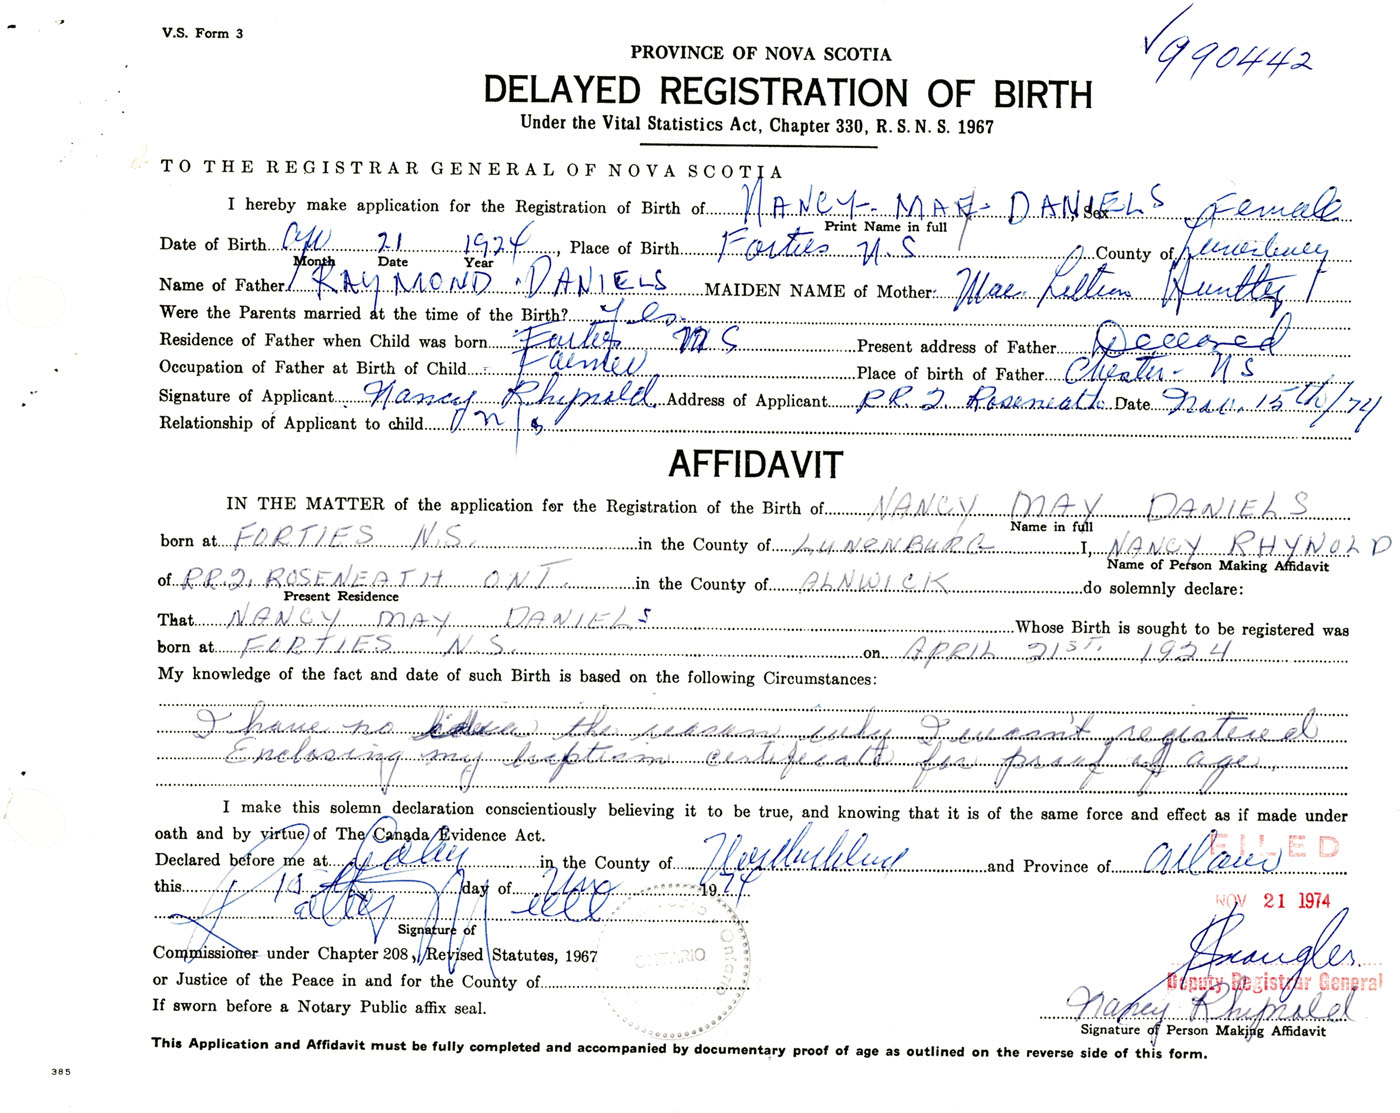 V.S. Form 3
990442
PROVINCE OF NOVA SCOTIA
DELAYED REGISTRATION OF BIRTH
Under the Vital Statistics Act, Chapter 330, R. S. N. S. 1967
TO THE REGISTRAR GENERAL OF NOVA SCOTIA
I hereby make application for the Registration of Birth of NANCY - MAE - DANIELS, Sex Female
Print Name in full
Date of Birth 21 1924, Place of Birth Forties N.S County of Lunenburg
Month Date Year
Name of Father RAYMOND DANIELS MAIDEN NAME of Mother: Mae Huntley
Were the Parents married at the time of the Birth? Yes.
Residence of Father when Child was born Forties NS Present address of Father Deceased
Occupation of Father at Birth of Child Farmer Place of birth of Father Chester - NS
Signature of Applicant Nancy Rhynold Address of Applicant RR.2. Roseneath Date Nov. 15th/74
Relationship of Applicant to child
AFFIDAVIT
IN THE MATTER of the application for the Registration of the Birth of NANCY MAY DANIELS
Name in full
born at FORTIES N.S. in the County of LUNENBURG I, NANCY RHYNOLD
Name of Person Making Affidavit
of RR.2. ROSENEATH ONT. in the County of ALNWICK do solemnly declare:
Present Residence
That NANCY MAY DANIELS Whose Birth is sought to be registered was
born at FORTIES N.S. on APRIL 21ST. 1924
My knowledge of the fact and date of such Birth is based on the following Circumstances:
I have no the reason why I wasn't registered
Enclosing my baptism certificate for proof of age.
I make this solemn declaration conscientiously believing it to be true, and knowing that it is of the same force and effect as if made under
oath and by virtue of The Canada Evidence Act.
FILED
Declared before me at in the County of Northumberland and Province of Ontario
this day of Nov 1974
NOV 21 1974
Signature of
Commissioner under Chapter 208, Revised Statutes, 1967
ONTARIO
or Justice of the Peace in and for the County of
Deputy Registrar General
If sworn before a Notary Public affix seal.
Nancy Rhynold
Signature of Person Making Affidavit
This Application and Affidavit must be fully completed and accompanied by documentary proof of age as outlined on the reverse side of this form.
385